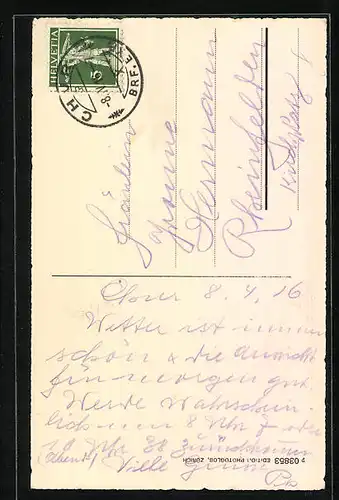 HELVETIA
5
CHUR
BRF.
Fräulein
Yvonne
Hermann
Rheinfelden
Kirchplatz!
Chur 8. 4. 16
Wetter ist immer
schön & die Aussicht
für morgen gut.
Werde Wahrschein-
lich um 8 Uhr 7 oder
10 Uhr 28 zurückkommen
(Abend)
Viele
№ 03853 EDITION PHOTOGLOB, ZÜRICH